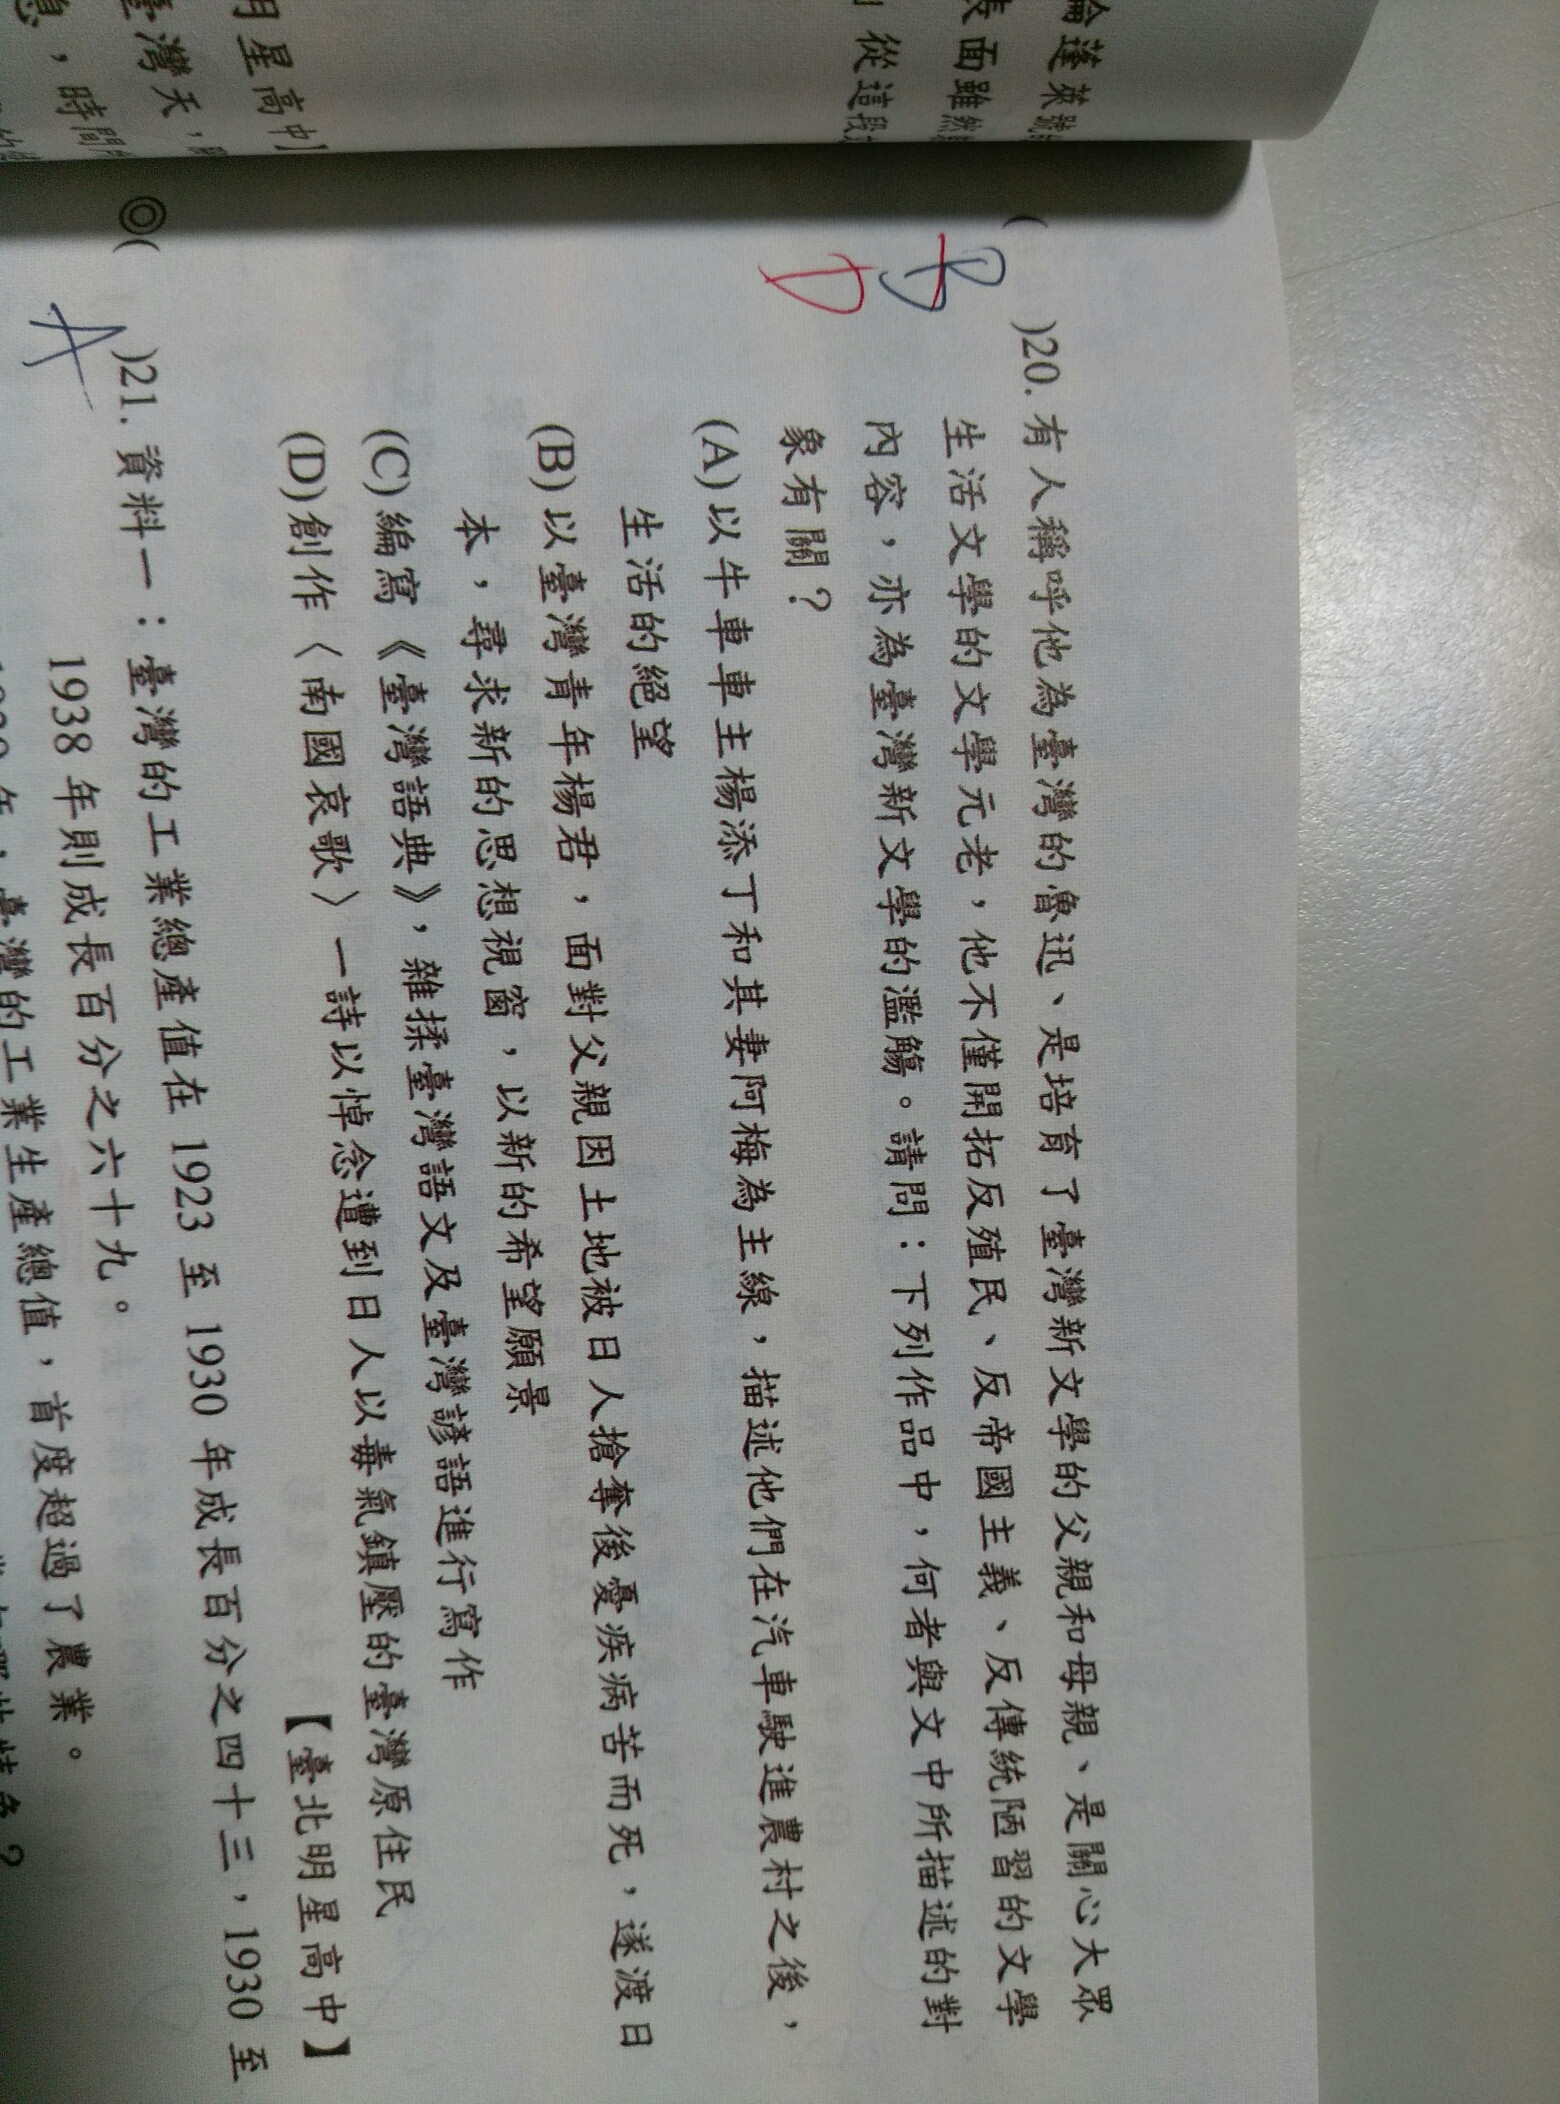 論蓬萊號
表面雖然
從這段
明星高中】
臺灣天，
息，時間
( B D )20. 有人稱呼他為臺灣的魯迅、是培育了臺灣新文學的父親和母親、是關心大眾
生活文學的文學元老，他不僅開拓反殖民、反帝國主義、反傳統陋習的文學
內容，亦為臺灣新文學的濫觴。請問：下列作品中，何者與文中所描述的對
象有關？
(A)以牛車車主楊添丁和其妻阿梅為主線，描述他們在汽車駛進農村之後，
生活的絕望
(B)以臺灣青年楊君，面對父親因土地被日人搶奪後憂疾病苦而死，遂渡日
本，尋求新的思想視窗，以新的希望願景
(C)編寫《臺灣語典》，雜揉臺灣語文及臺灣諺語進行寫作
(D)創作〈南國哀歌〉一詩以悼念遭到日人以毒氣鎮壓的臺灣原住民
【臺北明星高中】
◎( A )21. 資料一：臺灣的工業總產值在 1923 至 1930 年成長百分之四十三，1930 至
1938 年則成長百分之六十九。
年，臺灣的工業生產總值，首度超過了農業。